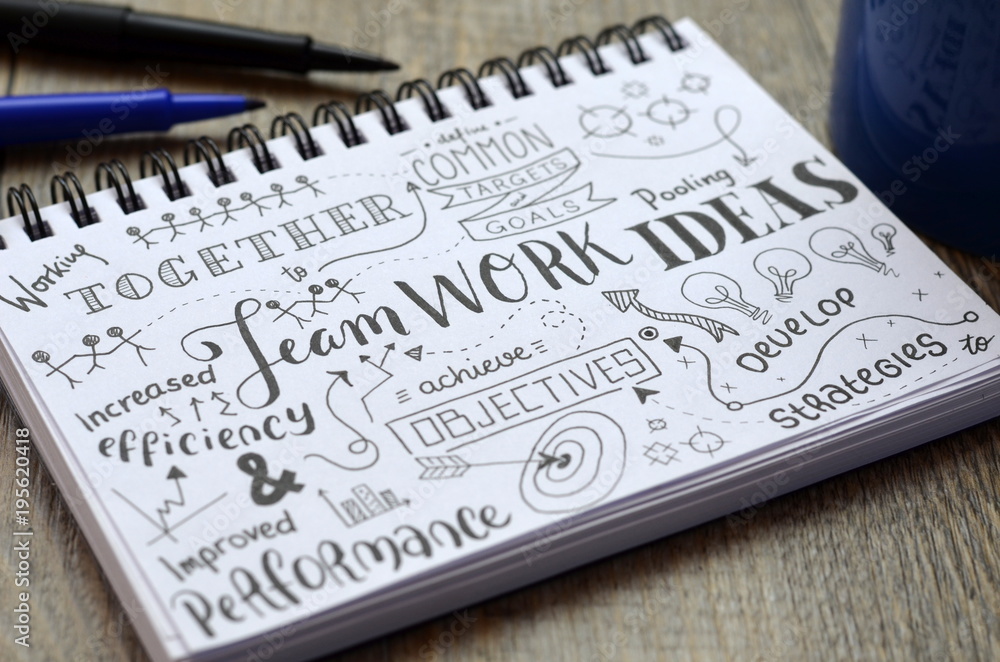 Working
TOGETHER
to
define
COMMON
TARGETS
GOALS
Pooling
IDEAS
Team WORK
Increased
efficiency
&
Improved
Performance
= achieve =
OBJECTIVES
Develop
Strategies
to
Adobe Stock | #195620418